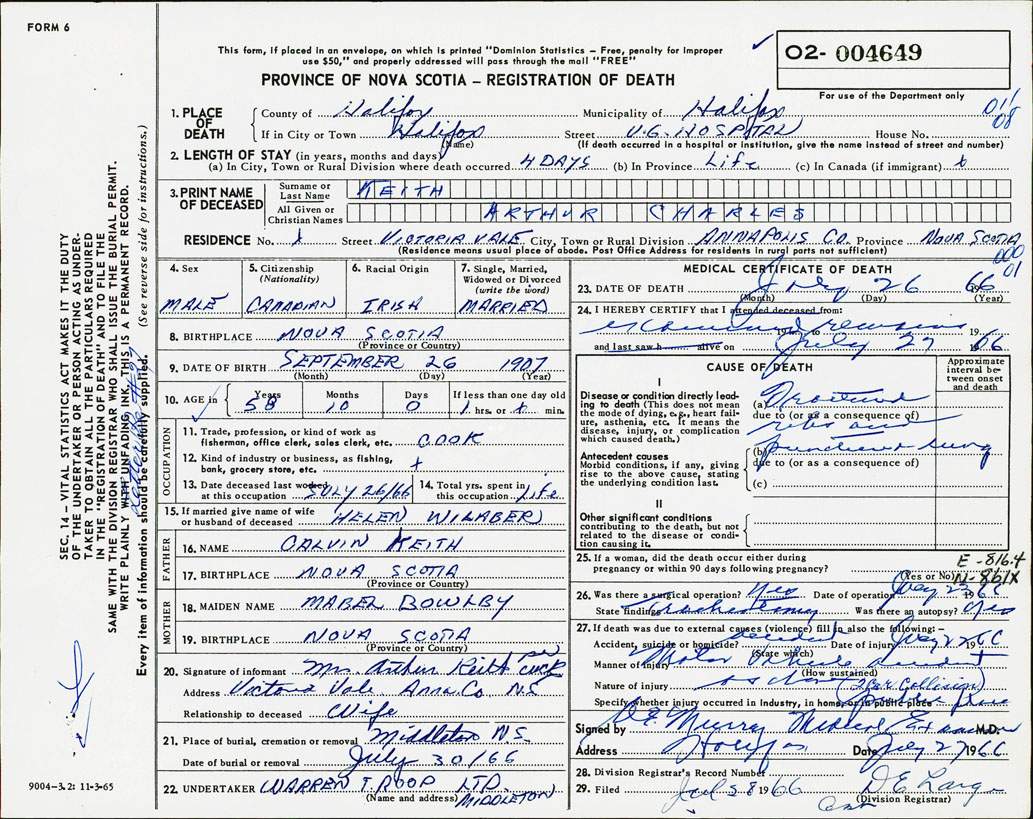 FORM 6
This form, if placed in an envelope, on which is printed "Dominion Statistics – Free, penalty for improper
use $50," and properly addressed will pass through the mail "FREE"
PROVINCE OF NOVA SCOTIA – REGISTRATION OF DEATH
02- 004649
For use of the Department only
011
08
1. PLACE OF DEATH
County of Halifax Municipality of Halifax
If in City or Town Halifax Street V.G. HOSPITAL House No.
(Name) (If death occurred in a hospital or institution, give the name instead of street and number)
2. LENGTH OF STAY (in years, months and days)
(a) In City, Town or Rural Division where death occurred 4 DAYS (b) In Province Life (c) In Canada (if immigrant) x
3. PRINT NAME OF DECEASED
Surname or Last Name KEITH
All Given or Christian Names ARTHUR CHARLES
RESIDENCE No. x Street VICTORIA VALE City, Town or Rural Division ANNAPOLIS CO. Province NOVA SCOTIA
(Residence means usual place of abode. Post Office Address for residents in rural parts not sufficient)
000
01
4. Sex MALE
5. Citizenship (Nationality) CANADIAN
6. Racial Origin IRISH
7. Single, Married, Widowed or Divorced (write the word) MARRIED
8. BIRTHPLACE NOVA SCOTIA
(Province or Country)
9. DATE OF BIRTH SEPTEMBER 26 1907
(Month) (Day) (Year)
10. AGE in Years 58 Months 10 Days 0 If less than one day old hrs. or min.
OCCUPATION
11. Trade, profession, or kind of work as fisherman, office clerk, sales clerk, etc. COOK
12. Kind of industry or business, as fishing, bank, grocery store, etc.
13. Date deceased last worked at this occupation JULY 26/66
14. Total yrs. spent in this occupation Life
15. If married give name of wife or husband of deceased HELEN WILABER
FATHER
16. NAME CALVIN KEITH
17. BIRTHPLACE NOVA SCOTIA
(Province or Country)
MOTHER
18. MAIDEN NAME MABEL BOWLBY
19. BIRTHPLACE NOVA SCOTIA
(Province or Country)
20. Signature of informant Mrs. Arthur Keith per
Address Victoria Vale Anna. Co. N.S.
Relationship to deceased Wife
21. Place of burial, cremation or removal Middleton N.S.
Date of burial or removal July 30/66
22. UNDERTAKER WARREN T. ROOP LTD. MIDDLETON
(Name and address)
MEDICAL CERTIFICATE OF DEATH
23. DATE OF DEATH July 26 1966
(Month) (Day) (Year)
24. I HEREBY CERTIFY that I attended deceased from:
examined remains
19 to 19
and last saw h alive on July 27 1966
CAUSE OF DEATH
Approximate interval between onset and death
I
Disease or condition directly leading to death (This does not mean the mode of dying, e.g., heart failure, asthenia, etc. It means the disease, injury, or complication which caused death.)
(a) Fractured
due to (or as a consequence of)
ribs and
Antecedent causes
Morbid conditions, if any, giving rise to the above cause, stating the underlying condition last.
(b) punctured lung
due to (or as a consequence of)
(c)
II
Other significant conditions contributing to the death, but not related to the disease or condition causing it.
25. If a woman, did the death occur either during pregnancy or within 90 days following pregnancy?
(Yes or No)
E-816.4
N-861X
26. Was there a surgical operation? Yes Date of operation July 22 1966
State findings Tracheotomy Was there an autopsy? Yes
27. If death was due to external causes (violence) fill in also the following:–
Accident, suicide or homicide? accident Date of injury July 22 66
(State which)
Manner of injury Motor Vehicle accident
(How sustained)
Nature of injury as above (2 Car Collision)
Specify whether injury occurred in industry, in home, or in public place public place
Signed by Murray Medical Examiner M.D.
Address Halifax Date July 27 1966
28. Division Registrar's Record Number
29. Filed Jul 28 1966
(Division Registrar)
SEC. 14 – VITAL STATISTICS ACT MAKES IT THE DUTY
OF THE UNDERTAKER OR PERSON ACTING AS UNDER-
TAKER TO OBTAIN ALL THE PARTICULARS REQUIRED
IN THE "REGISTRATION OF DEATH" AND TO FILE THE
SAME WITH THE DIVISION REGISTRAR WHO SHALL ISSUE THE BURIAL PERMIT.
WRITE PLAINLY WITH UNFADING INK, THIS IS A PERMANENT RECORD.
Every item of information should be carefully supplied. (See reverse side for instructions.)
9004-3.2: 11-3-65